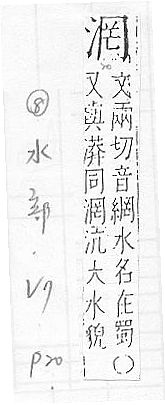 㳹
文兩切音網水名在蜀()
又與漭同㳹沆大水貌
⑧水部·47
P20